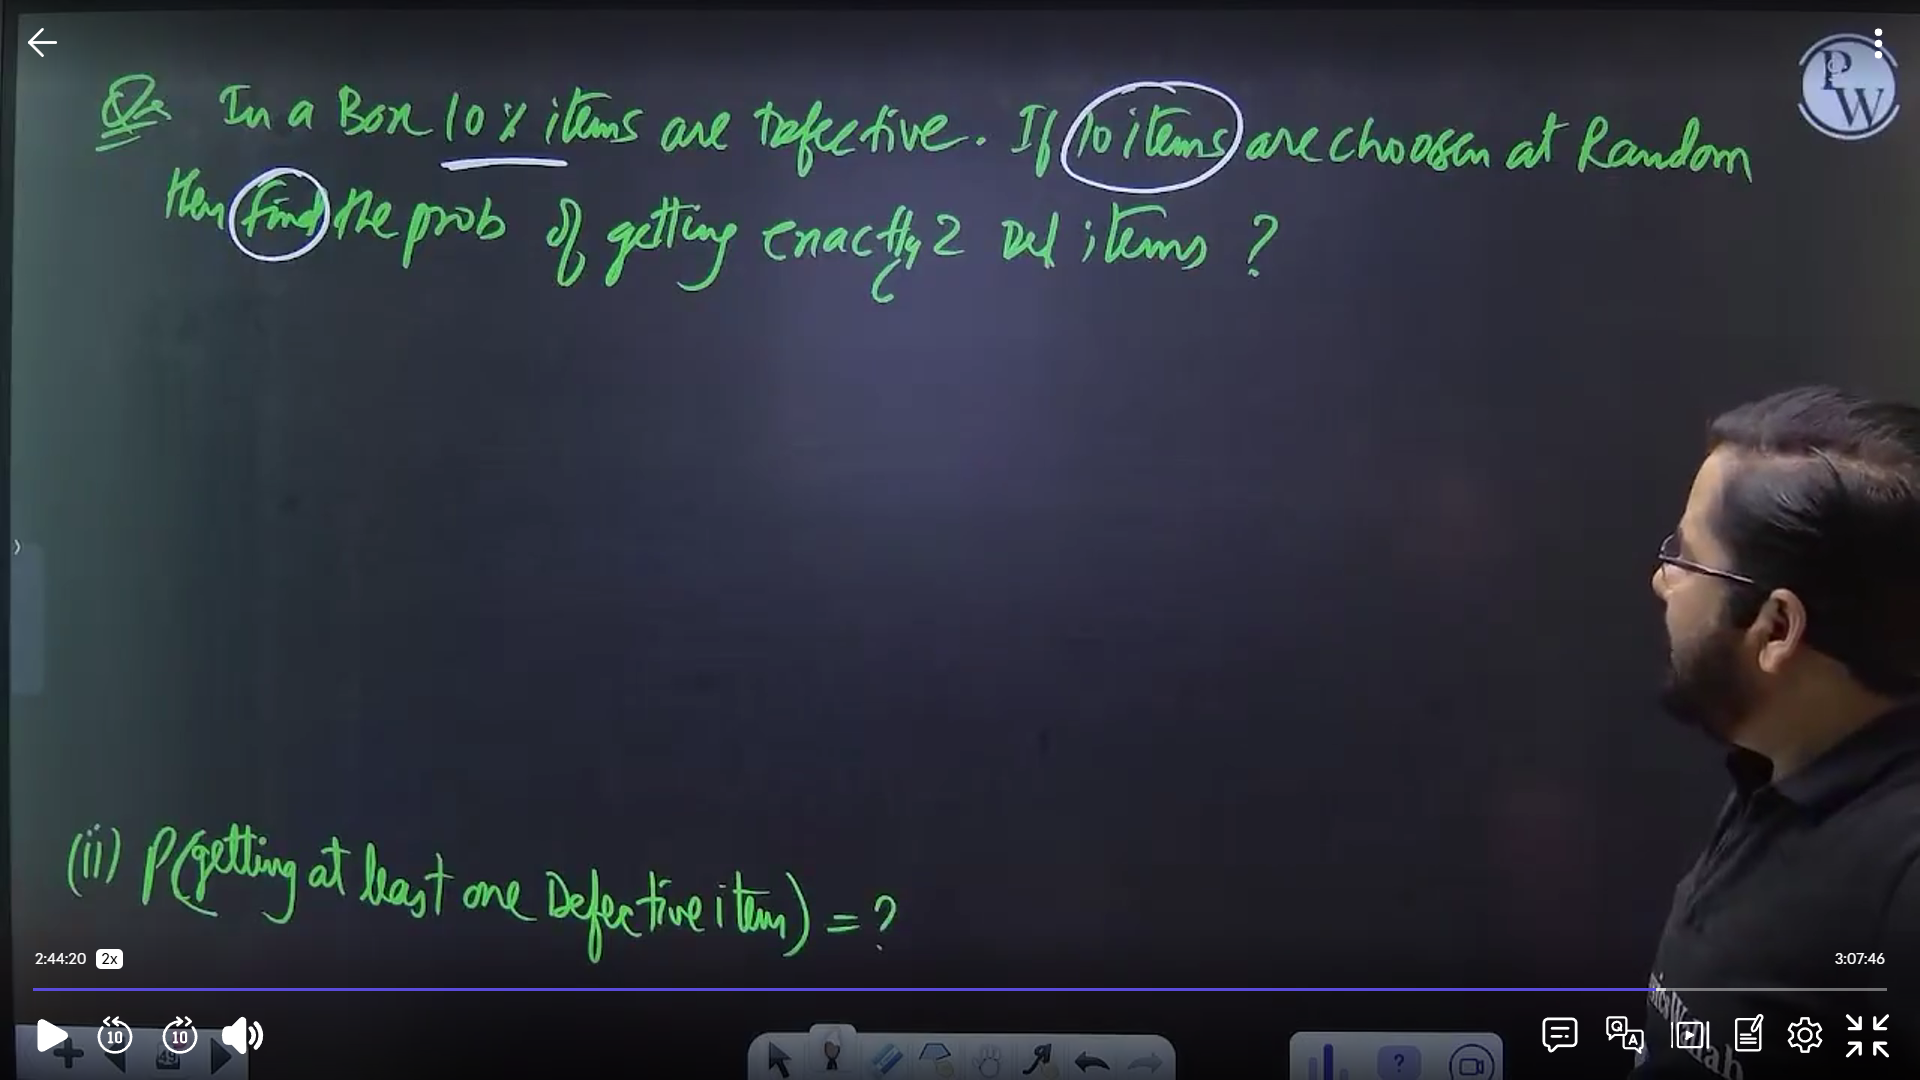 Q. In a Box 10% items are Defective. If 10 items are choosen at Random
then find the prob of getting exactly 2 Def items ?
(ii) P(getting at least one Defective item) = ?
2:44:20 2x
3:07:46
10 10
49
PW